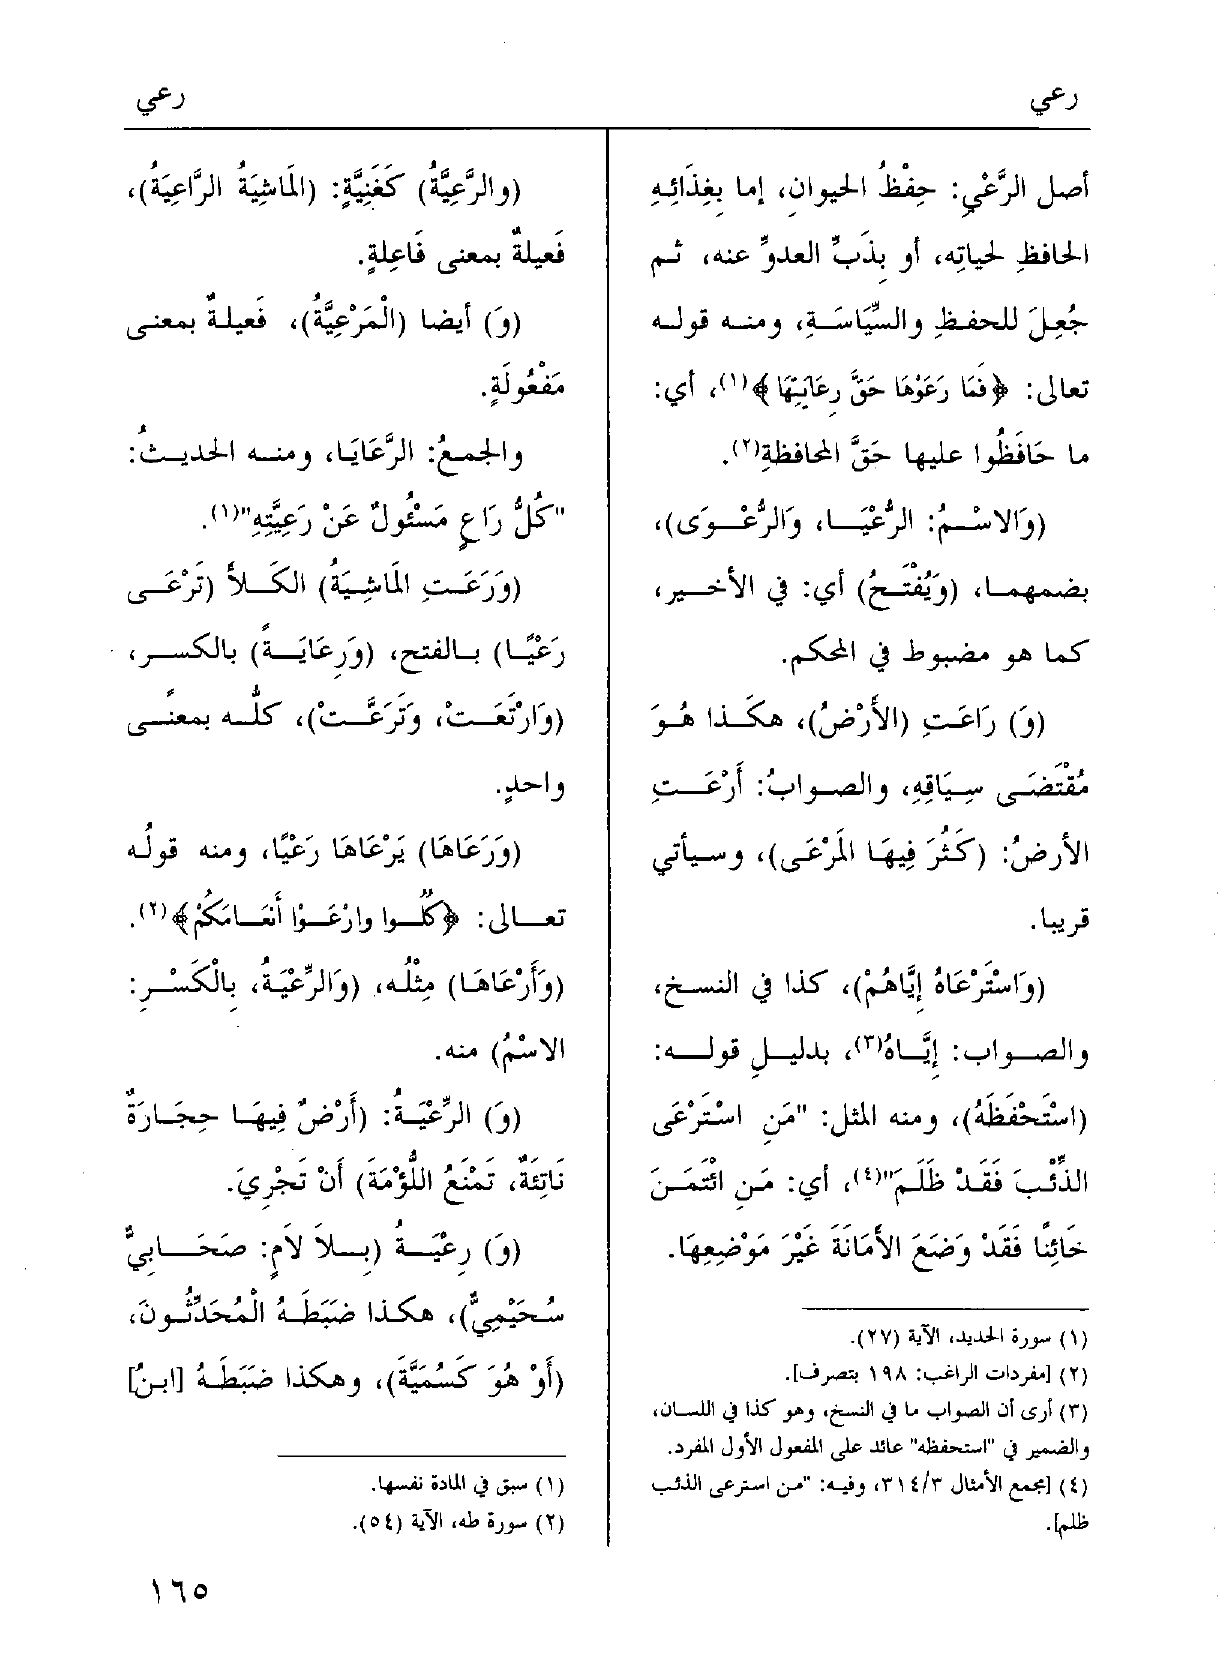 رعي
رعي
أصل الرَّعْيِ: حِفْظُ الحيوانِ، إما بِغِذَائِهِ
الحافظِ لحياتِه، أو بِذَبِّ العدوِّ عنه، ثم
جُعِلَ للحفظِ والسِّيَاسَةِ، ومنه قوله
تعالى: ﴿فَمَا رَعَوْهَا حَقَّ رِعَايَتِهَا﴾(١)، أي:
ما حَافَظُوا عليها حَقَّ المحافظةِ(٢).
(وَالاسْمُ: الرُّعْيَا، وَالرُّعْوَى)،
بضمهما، (وَيُفْتَحُ) أي: في الأخير،
كما هو مضبوط في المحكم.
(وَ) رَاعَتِ (الأَرْضُ)، هكذا هُوَ
مُقْتَضَى سِيَاقِهِ، والصوابُ: أَرْعَتِ
الأرضُ: (كَثُرَ فِيهَا المَرْعَى)، وسيأتي
قريبا.
(وَاسْتَرْعَاهُ إِيَّاهُمْ)، كذا في النسخِ،
والصوابُ: إِيَّاهُ(٣)، بدليلِ قوله:
(اسْتَحْفَظَهُ)، ومنه المثل: "مَنِ اسْتَرْعَى
الذِّئْبَ فَقَدْ ظَلَمَ"(٤)، أي: مَنِ ائْتَمَنَ
خَائِنًا فَقَدْ وَضَعَ الأَمَانَةَ غَيْرَ مَوْضِعِهَا.
(١) سورة الحديد، الآية (٢٧).
(٢) [مفردات الراغب: ١٩٨ بتصرف].
(٣) أرى أن الصواب ما في النسخ، وهو كذا في اللسان،
والضمير في "استحفظه" عائد على المفعول الأول المفرد.
(٤) [مجمع الأمثال ٣١٤/٣، وفيه: "من استرعى الذئب
ظلم].
(والرَّعِيَّةُ) كَغَنِيَّةٍ: (المَاشِيَةُ الرَّاعِيَةُ)،
فَعِيلةٌ بمعنى فَاعِلةٍ.
(وَ) أيضا (الْمَرْعِيَّةُ)، فَعيلةٌ بمعنى
مَفْعُولَةٍ.
والجمعُ: الرَّعَايَا، ومنه الحديثُ:
"كُلُّ رَاعٍ مَسْئُولٌ عَنْ رَعِيَّتِهِ"(١).
(وَرَعَتِ المَاشِيَةُ) الكَلأَ (تَرْعَى
رَعْيًا) بالفتح، (وَرِعَايَةً) بالكسرِ،
(وَارْتَعَتْ، وَتَرَعَّتْ)، كلُّه بمعنًى
واحدٍ.
(وَرَعَاهَا) يَرْعَاهَا رَعْيًا، ومنه قولُه
تعالى: ﴿كُلُوا وارْعَوْا أَنْعَامَكُمْ﴾(٢).
(وَأَرْعَاهَا) مِثْلُه، (وَالرِّعْيَةُ، بِالْكَسْرِ:
الاسْمُ) منه.
(وَ) الرِّعْيَةُ: (أَرْضٌ فِيهَا حِجَارَةٌ
نَاتِئَةٌ، تَمْنَعُ اللُّؤْمَةَ) أَنْ تَجْرِيَ.
(وَ) رِعْيَةُ (بِلاَ لاَمٍ: صَحَابِيٌّ
سُحَيْمِيٌّ)، هكذا ضَبَطَهُ الْمُحَدِّثُونَ،
(أَوْ هُوَ كَسُمَيَّةَ)، وهكذا ضَبَطَهُ [ابنُ]
(١) سبق في المادة نفسها.
(٢) سورة طه، الآية (٥٤).
١٦٥